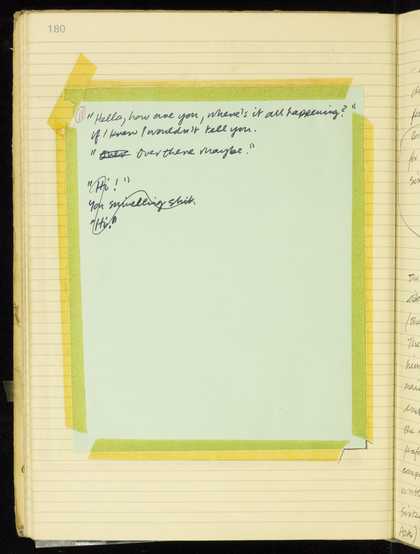 180
"Hello, how are you, where's it all happening?"
If I knew I wouldn't tell you.
"Over Over there maybe."
"Hi!"
You smelling shit.
"Hi!"